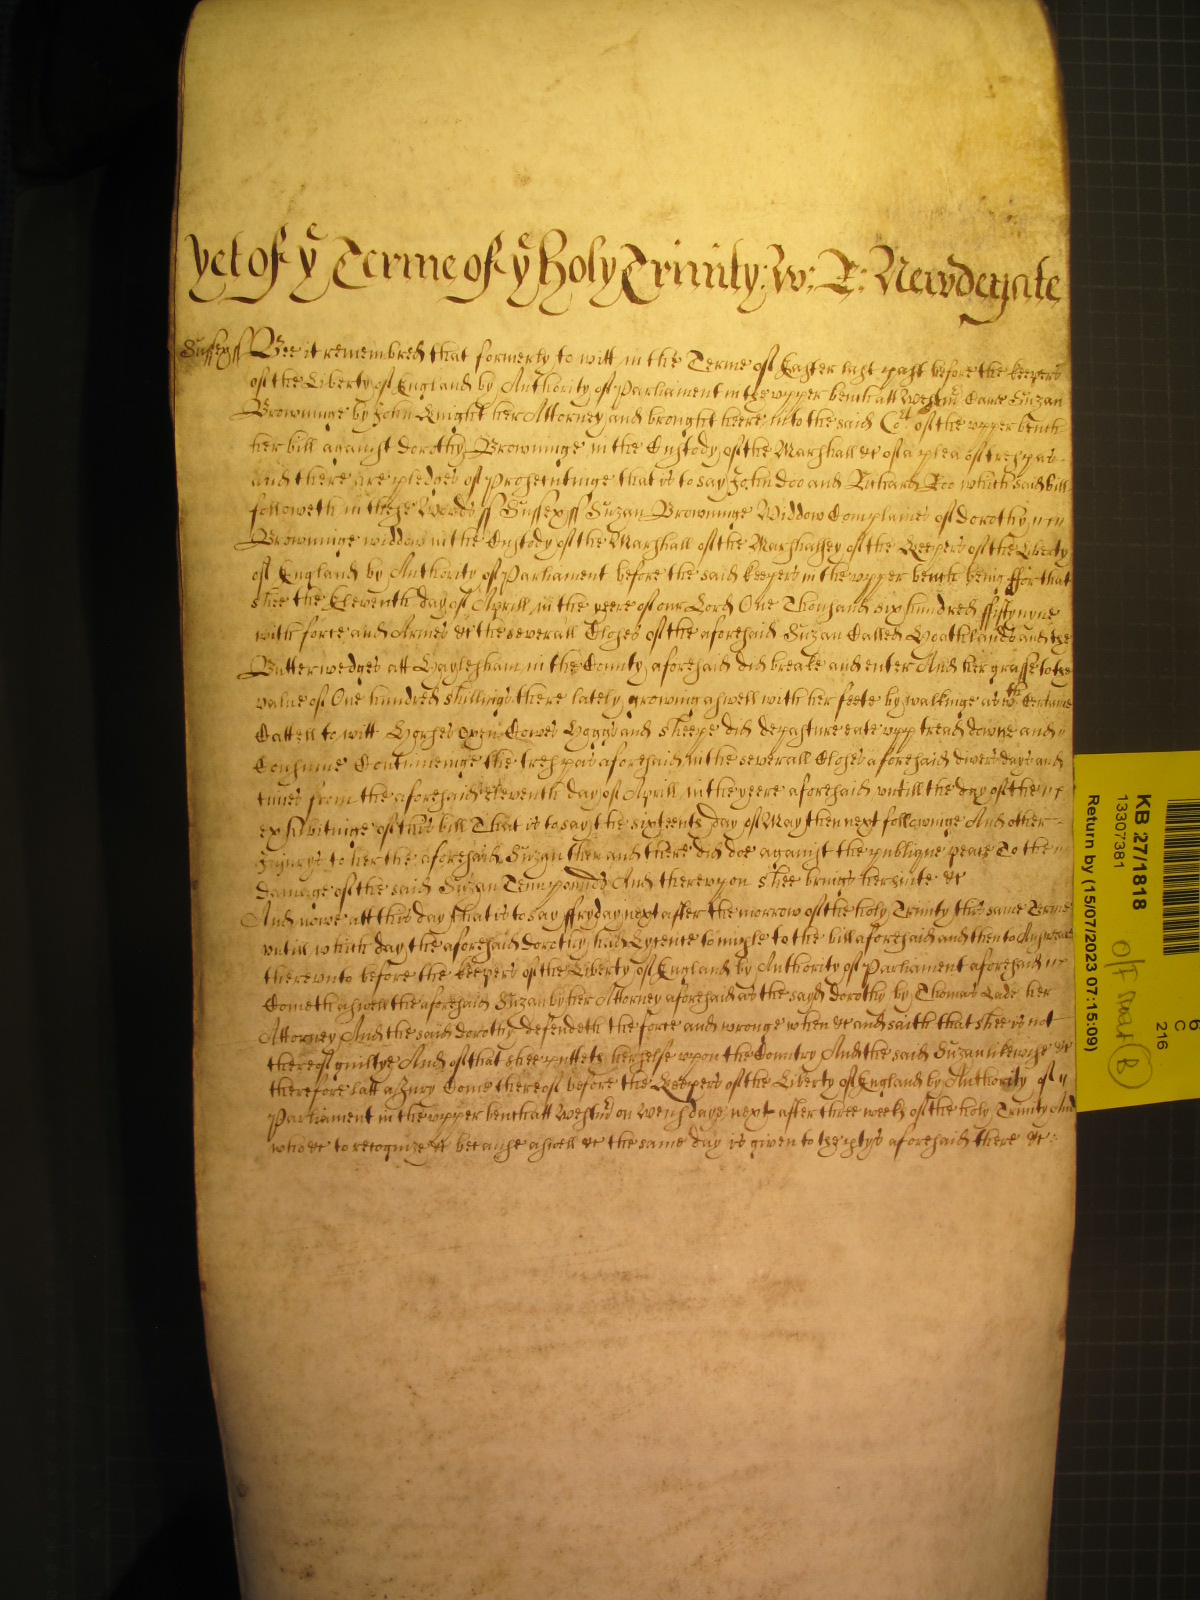 yet of ye Terme of ye Holy Trinity: W: R: Newdegate
Sussex ss Bee it remembred that formerly to witt in the Terme of Easter last past before the keepers
of the Liberty of England by Authority of Parliament in the vpper bench att Westmr Came Suzan
Browninge by John Knight her Attorney and brought heere into the said Cort of the vpper bench
her bill against dorothy Browninge in the Custody of the Marshall &c of a plea of trespas
And there are pledges of prosecutinge that is to say John doo and Richard Roo which said bill
followeth in these Words ss Sussex ss Suzan Browninge Widdow Complaines of dorothy
Browninge widdow in the Custody of the Marshall of the Marshalsey of the Keepers of the Liberty
of England by Authority of Parliament before the said keepers in the vpper bench being ffor that
shee the Eleventh day of Aprill in the yeere of our Lord One Thousand six hundred ffiftynyne
with force and Armes &c the severall Closes of the aforesaid Suzan Called and the
Butterwedges att Haylesham in the County aforesaid did breake and enter And her grasse to the
value of One hundred shillings there lately growing aswell with her feete by walkinge as with Certaine
Cattell to witt Horses Oxen Cowes Hoggs and sheepe did depasture eate vpp tread downe and
Consume Continueinge the trespas aforesaid in the severall Closes aforesaid divers days and
times from the aforesaid eleventh day of Aprill in the yeere aforesaid vntill the day of the
exhibitinge of this bill That is to say the sixteenth day of May then next followinge And other
Injurys to her the aforesaid Suzan then and there did doe against the publique peace To the
damage of the said Suzan Tenn pounds And therevpon shee brings her suite &c
And nowe att this day that is to say ffryday next after the morrow of the holy Trinity this same Terme
vntill which day the aforesaid dorothy had Lycence to imple to the bill aforesaid and then to Answeare
therevnto before the keepers of the Liberty of England by Authority of Parliament aforesaid
Cometh aswell the aforesaid Suzan by her Attorney aforesaid as the sayd dorothy by Thomas Lade her
Attorney And the said dorothy defendeth the force and wronge when &c and saith that shee is not
thereof guiltye And of that shee putteth her selfe vpon the Country And the said Suzan likewise &c
therefore latt a Jury Come thereof before the Keepers of the Liberty of England by Authority of
Parliament in the vpper bench att Westmr on Wensdaye next after three weeks of the holy Trinity And
who &c to recognize &c because aswell &c the same day is given to the ptys aforesaid there &c
KB 27/1818
13307381
Return by (15/07/2023 07:15:09)
C
216
B